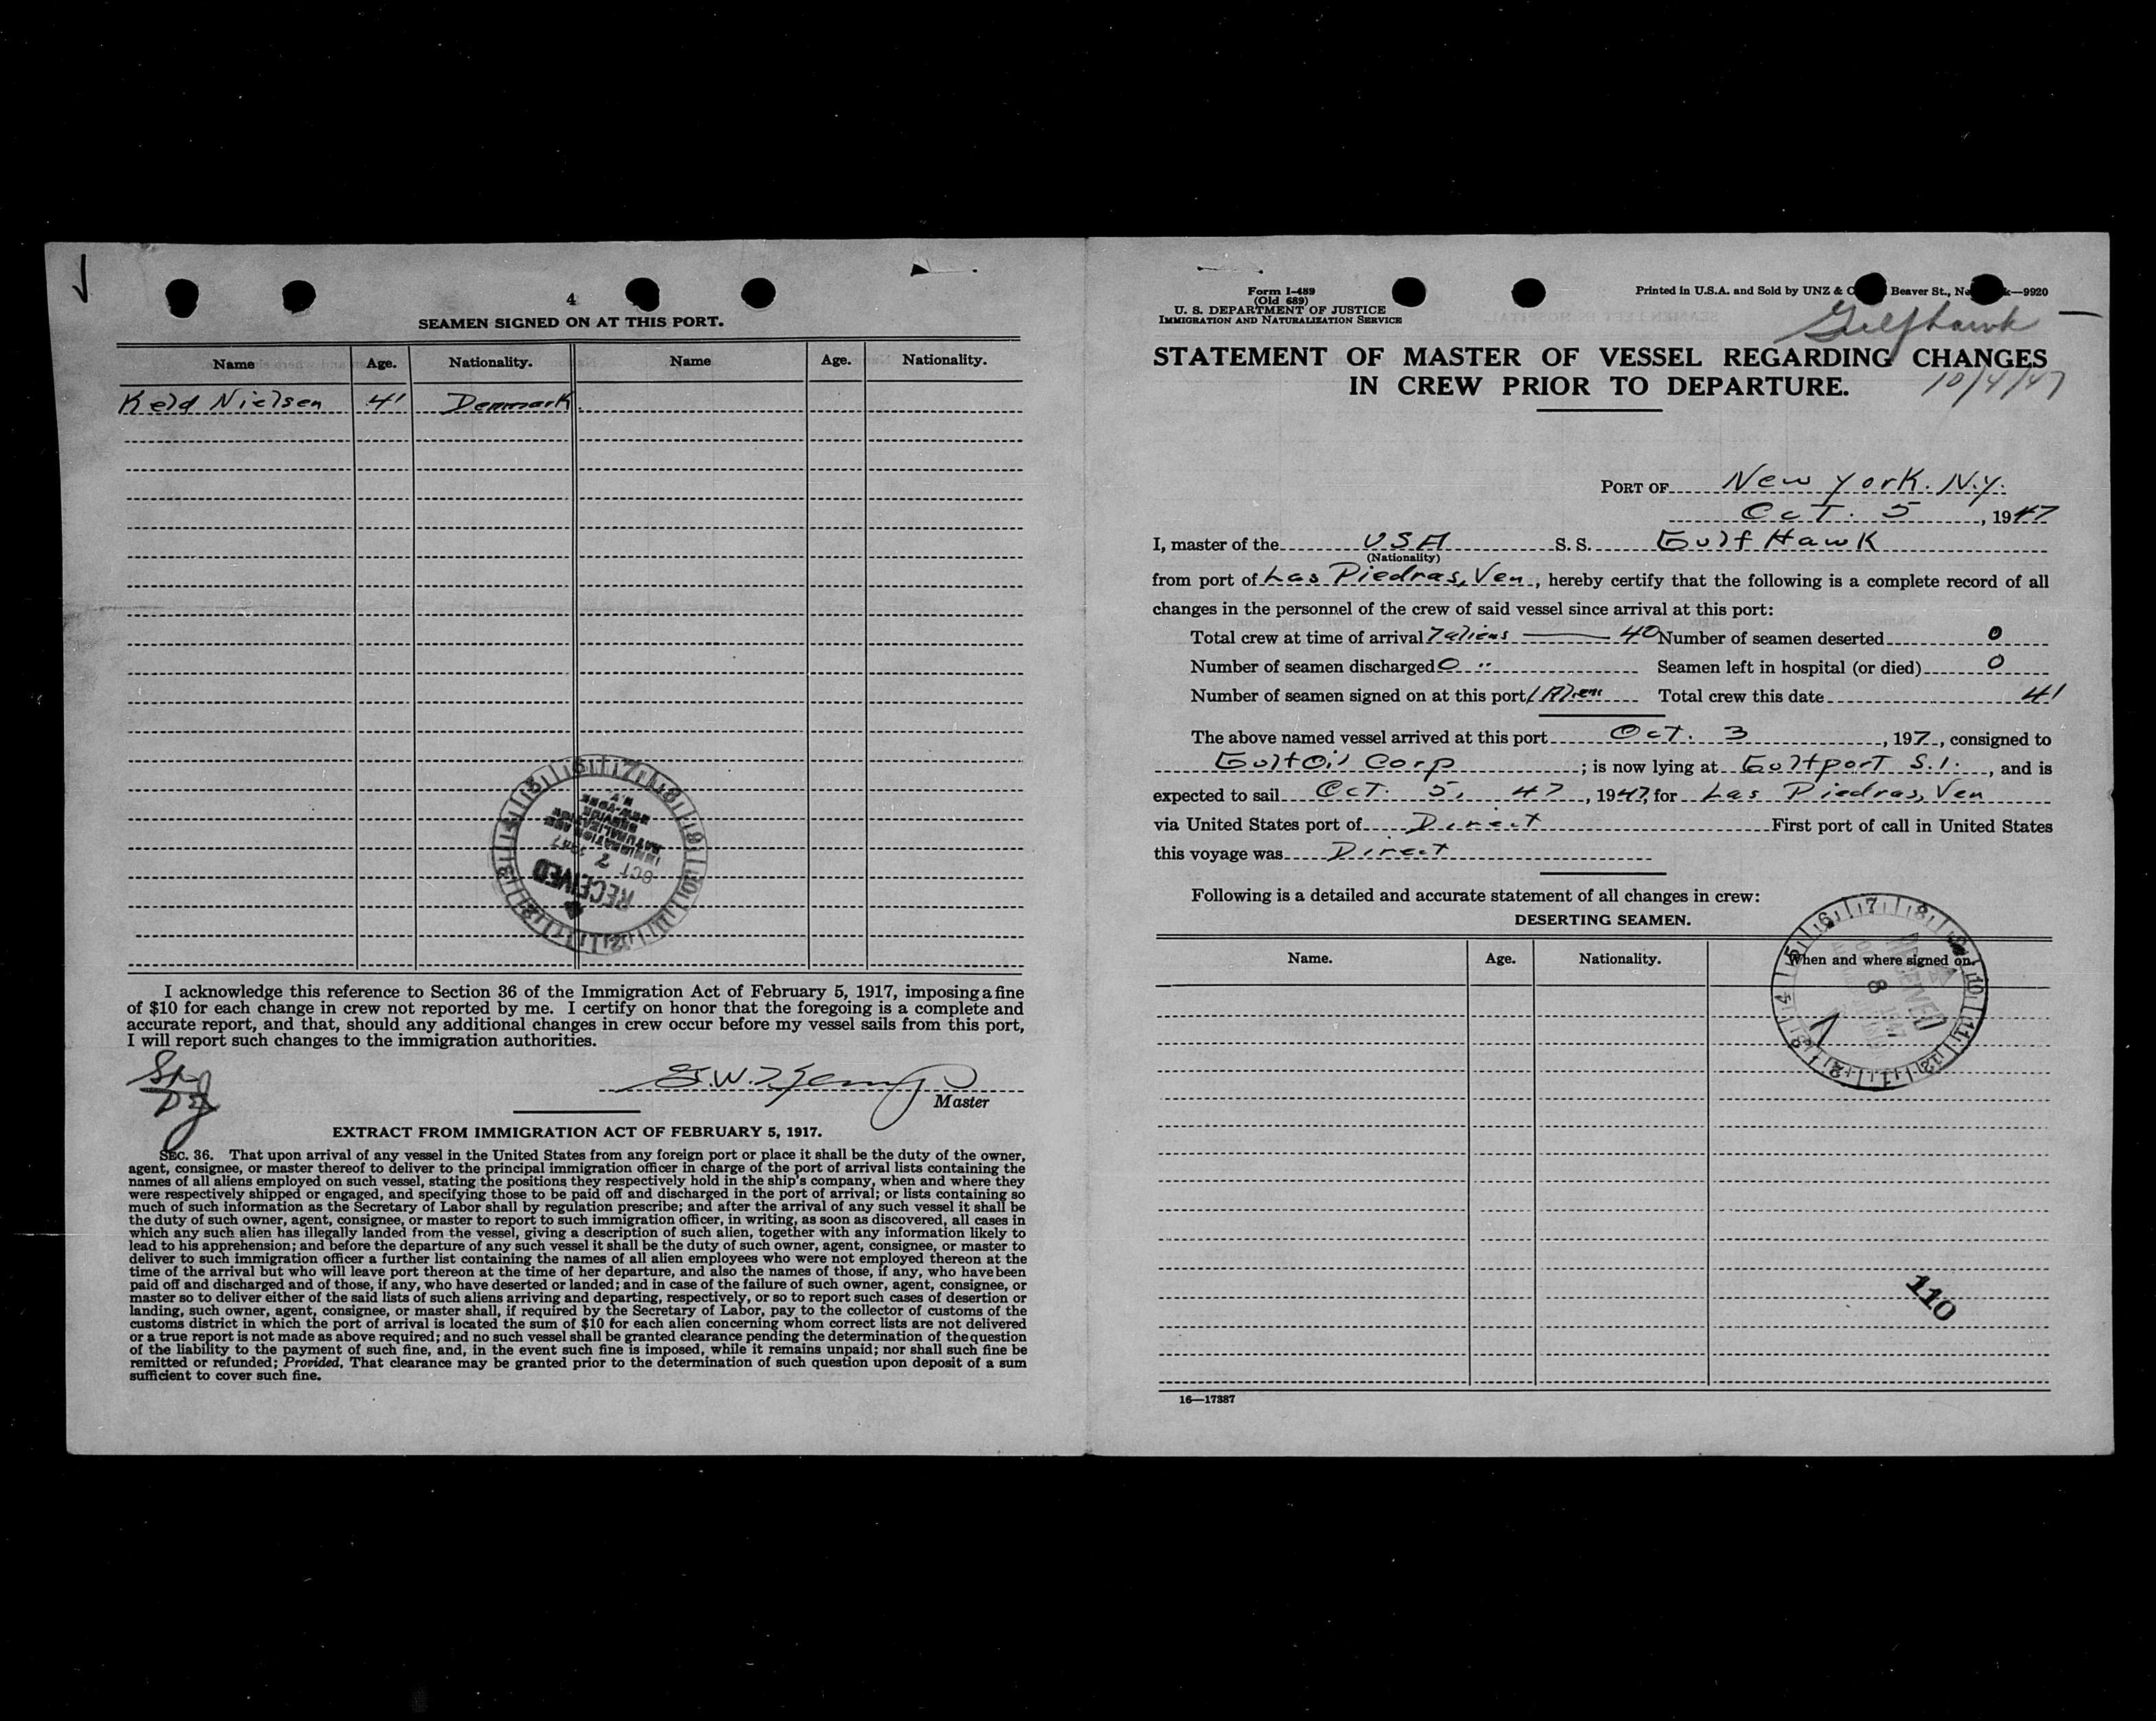 4
SEAMEN SIGNED ON AT THIS PORT.
Name Age. Nationality. Name Age. Nationality.
Keld Nielsen 41 Denmark
RECEIVED
OCT 7 1947
IMMIGRATION AND
NATURALIZATION
SERVICE
NEW YORK
N.Y.
I acknowledge this reference to Section 36 of the Immigration Act of February 5, 1917, imposing a fine
of $10 for each change in crew not reported by me. I certify on honor that the foregoing is a complete and
accurate report, and that, should any additional changes in crew occur before my vessel sails from this port,
I will report such changes to the immigration authorities.
Master
EXTRACT FROM IMMIGRATION ACT OF FEBRUARY 5, 1917.
SEC. 36. That upon arrival of any vessel in the United States from any foreign port or place it shall be the duty of the owner,
agent, consignee, or master thereof to deliver to the principal immigration officer in charge of the port of arrival lists containing the
names of all aliens employed on such vessel, stating the positions they respectively hold in the ship's company, when and where they
were respectively shipped or engaged, and specifying those to be paid off and discharged in the port of arrival; or lists containing so
much of such information as the Secretary of Labor shall by regulation prescribe; and after the arrival of any such vessel it shall be
the duty of such owner, agent, consignee, or master to report to such immigration officer, in writing, as soon as discovered, all cases in
which any such alien has illegally landed from the vessel, giving a description of such alien, together with any information likely to
lead to his apprehension; and before the departure of any such vessel it shall be the duty of such owner, agent, consignee, or master to
deliver to such immigration officer a further list containing the names of all alien employees who were not employed thereon at the
time of the arrival but who will leave port thereon at the time of her departure, and also the names of those, if any, who have been
paid off and discharged and of those, if any, who have deserted or landed; and in case of the failure of such owner, agent, consignee, or
master so to deliver either of the said lists of such aliens arriving and departing, respectively, or so to report such cases of desertion or
landing, such owner, agent, consignee, or master shall, if required by the Secretary of Labor, pay to the collector of customs of the
customs district in which the port of arrival is located the sum of $10 for each alien concerning whom correct lists are not delivered
or a true report is not made as above required; and no such vessel shall be granted clearance pending the determination of the question
of the liability to the payment of such fine, and, in the event such fine is imposed, while it remains unpaid; nor shall such fine be
remitted or refunded; Provided, That clearance may be granted prior to the determination of such question upon deposit of a sum
sufficient to cover such fine.
Form I-489
(Old 689)
U. S. DEPARTMENT OF JUSTICE
IMMIGRATION AND NATURALIZATION SERVICE
Printed in U.S.A. and Sold by UNZ & C Beaver St., Ne k—9920
Gulfhawk
STATEMENT OF MASTER OF VESSEL REGARDING CHANGES
IN CREW PRIOR TO DEPARTURE.
10/4/47
PORT OF New York. N.Y.
Oct. 5, 1947
I, master of the USA S. S. Gulf Hawk
(Nationality)
from port of Las Piedras, Ven., hereby certify that the following is a complete record of all
changes in the personnel of the crew of said vessel since arrival at this port:
Total crew at time of arrival 7 aliens — 40 Number of seamen deserted 0
Number of seamen discharged 0 " Seamen left in hospital (or died) 0
Number of seamen signed on at this port 1 Alien Total crew this date 41
The above named vessel arrived at this port Oct. 3, 197, consigned to
Gulf Oil Corp; is now lying at Gulfport S.I., and is
expected to sail Oct. 5, 47, 1947, for Las Piedras, Ven
via United States port of Direct First port of call in United States
this voyage was Direct
Following is a detailed and accurate statement of all changes in crew:
DESERTING SEAMEN.
Name. Age. Nationality. When and where signed on.
RECEIVED
8
110
16—17387